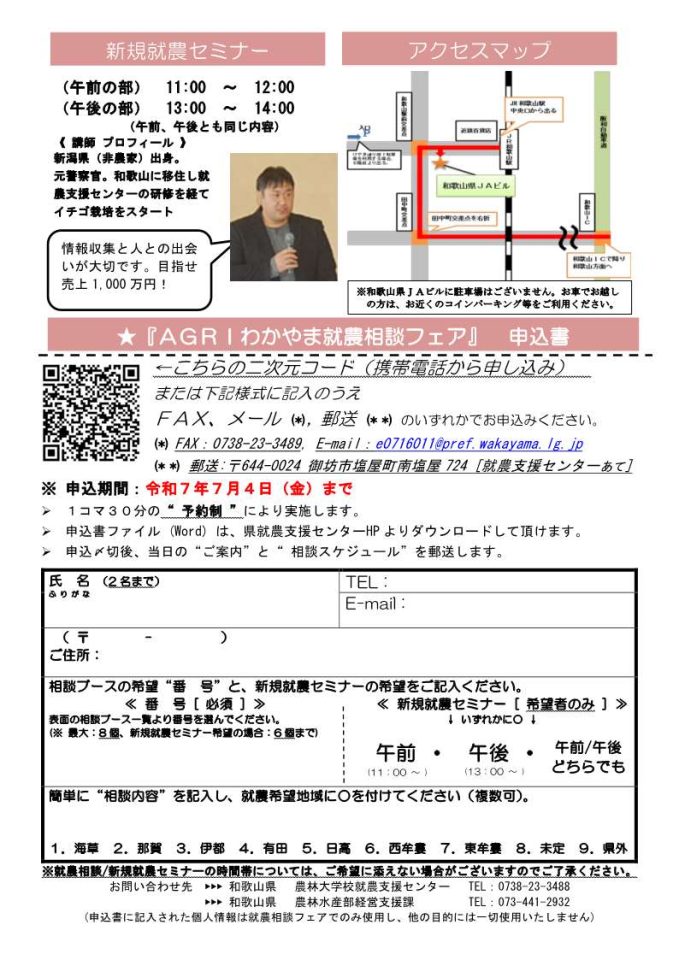 新規就農セミナー
（午前の部） 11:00 ～ 12:00
（午後の部） 13:00 ～ 14:00
（午前、午後とも同じ内容）
《 講師 プロフィール 》
新潟県（非農家）出身。
元警察官。和歌山に移住し就
農支援センターの研修を経て
イチゴ栽培をスタート
情報収集と人との出会
いが大切です。目指せ
売上 1,000 万円！
アクセスマップ
JR和歌山駅
中央口から出る
近鉄百貨店
JR和歌山駅
阪和自動車道
和歌山県JAビル
田中町交差点
田中町交差点を右折
和歌山IC
和歌山ICで降り
和歌山方面へ
※和歌山県JAビルに駐車場はございません。お車でお越し
の方は、お近くのコインパーキング等をご利用ください。
★『AGRIわかやま就農相談フェア』 申込書
←こちらの二次元コード（携帯電話から申し込み）
または下記様式に記入のうえ
FAX、メール (*), 郵送 (**) のいずれかでお申込みください。
(*) FAX：0738-23-3489, E-mail：e0716011@pref.wakayama.lg.jp
(**) 郵送：〒644-0024 御坊市塩屋町南塩屋 724 [就農支援センターあて]
※ 申込期間：令和7年7月4日（金）まで
➢ 1コマ30分の“ 予約制 ”により実施します。
➢ 申込書ファイル (Word) は、県就農支援センターHP よりダウンロードして頂けます。
➢ 申込〆切後、当日の“ご案内”と“ 相談スケジュール”を郵送します。
氏 名 （2名まで）
ふりがな
TEL：
E-mail：
（〒 - ）
ご住所：
相談ブースの希望“番 号”と、新規就農セミナーの希望をご記入ください。
≪ 番 号 [ 必須 ] ≫
表面の相談ブース一覧より番号を選んでください。
(※ 最大：8個、新規就農セミナー希望の場合：6個まで)
≪ 新規就農セミナー [ 希望者のみ ] ≫
↓ いずれかに○ ↓
午前 ・ 午後 ・ 午前/午後
どちらでも
(11：00 ～ ) (13：00 ～ )
簡単に“相談内容”を記入し、就農希望地域に○を付けてください（複数可）。
1．海草 2．那賀 3．伊都 4．有田 5．日高 6．西牟婁 7．東牟婁 8．未定 9．県外
※就農相談/新規就農セミナーの時間帯については、ご希望に添えない場合がございますのでご了承ください。
お問い合わせ先 ▸▸▸ 和歌山県 農林大学校就農支援センター TEL：0738-23-3488
▸▸▸ 和歌山県 農林水産部経営支援課 TEL：073-441-2932
(申込書に記入された個人情報は就農相談フェアでのみ使用し、他の目的には一切使用いたしません)